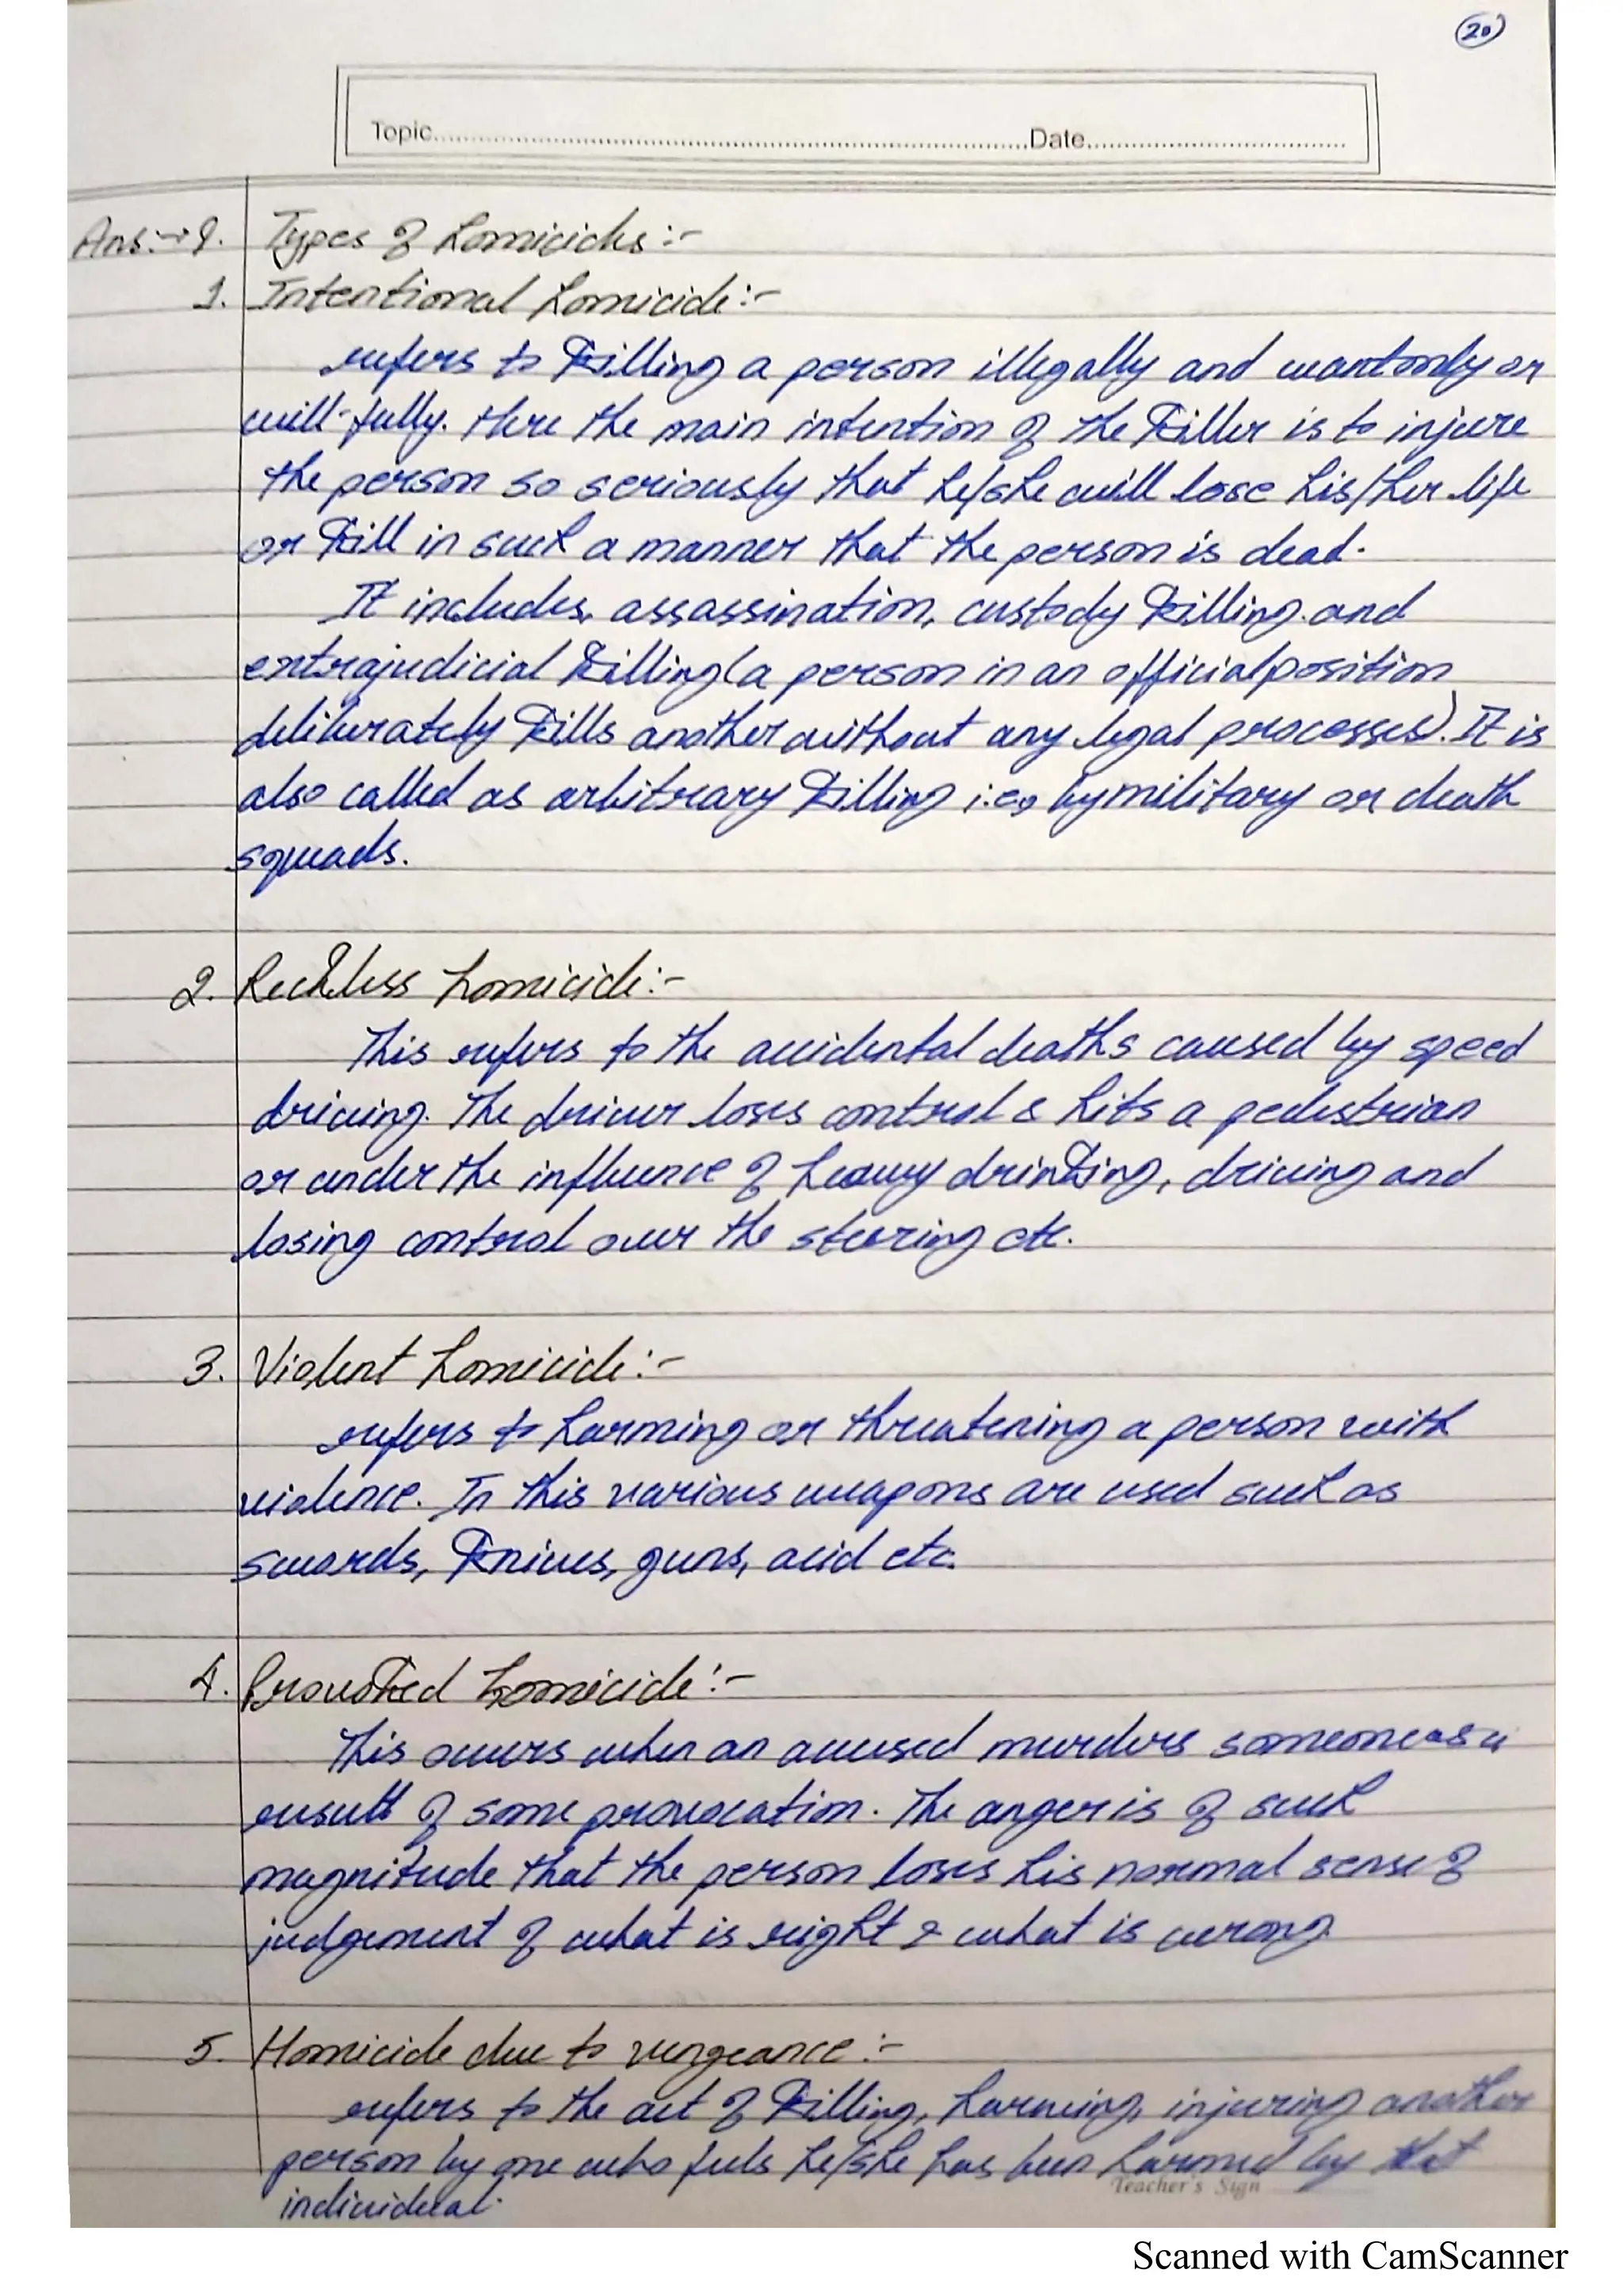 20
Topic.....Date.....
Ans:→ 9. Types of homicides:-
1. Intentional homicide:-
refers to killing a person illegally and wantonly or
will-fully. Here the main intention of the killer is to injure
the person so seriously that he/she will lose his/her life
or kill in such a manner that the person is dead.
It includes, assassination, custody killing and
extrajudicial killing (a person in an official position
deliberately kills another without any legal processes). It is
also called as arbitrary killing i.e., by military or death
squads.
2. Reckless homicide:-
This refers to the accidental deaths caused by speed
driving. The driver loses control & hits a pedestrian
or under the influence of heavy drinking, driving and
losing control over the steering etc.
3. Violent homicide:-
refers to harming or threatening a person with
violence. In this various weapons are used such as
swords, knives, guns, acid etc.
4. Provoked homicide:-
This occurs when an accused murders someone as a
result of some provocation. The anger is of such
magnitude that the person loses his normal sense of
judgement of what is right & what is wrong.
5. Homicide due to vengeance:-
refers to the act of killing, harming, injuring another
person by one who feels he/she has been harmed by that
individual.
Teacher's Sign
Scanned with CamScanner